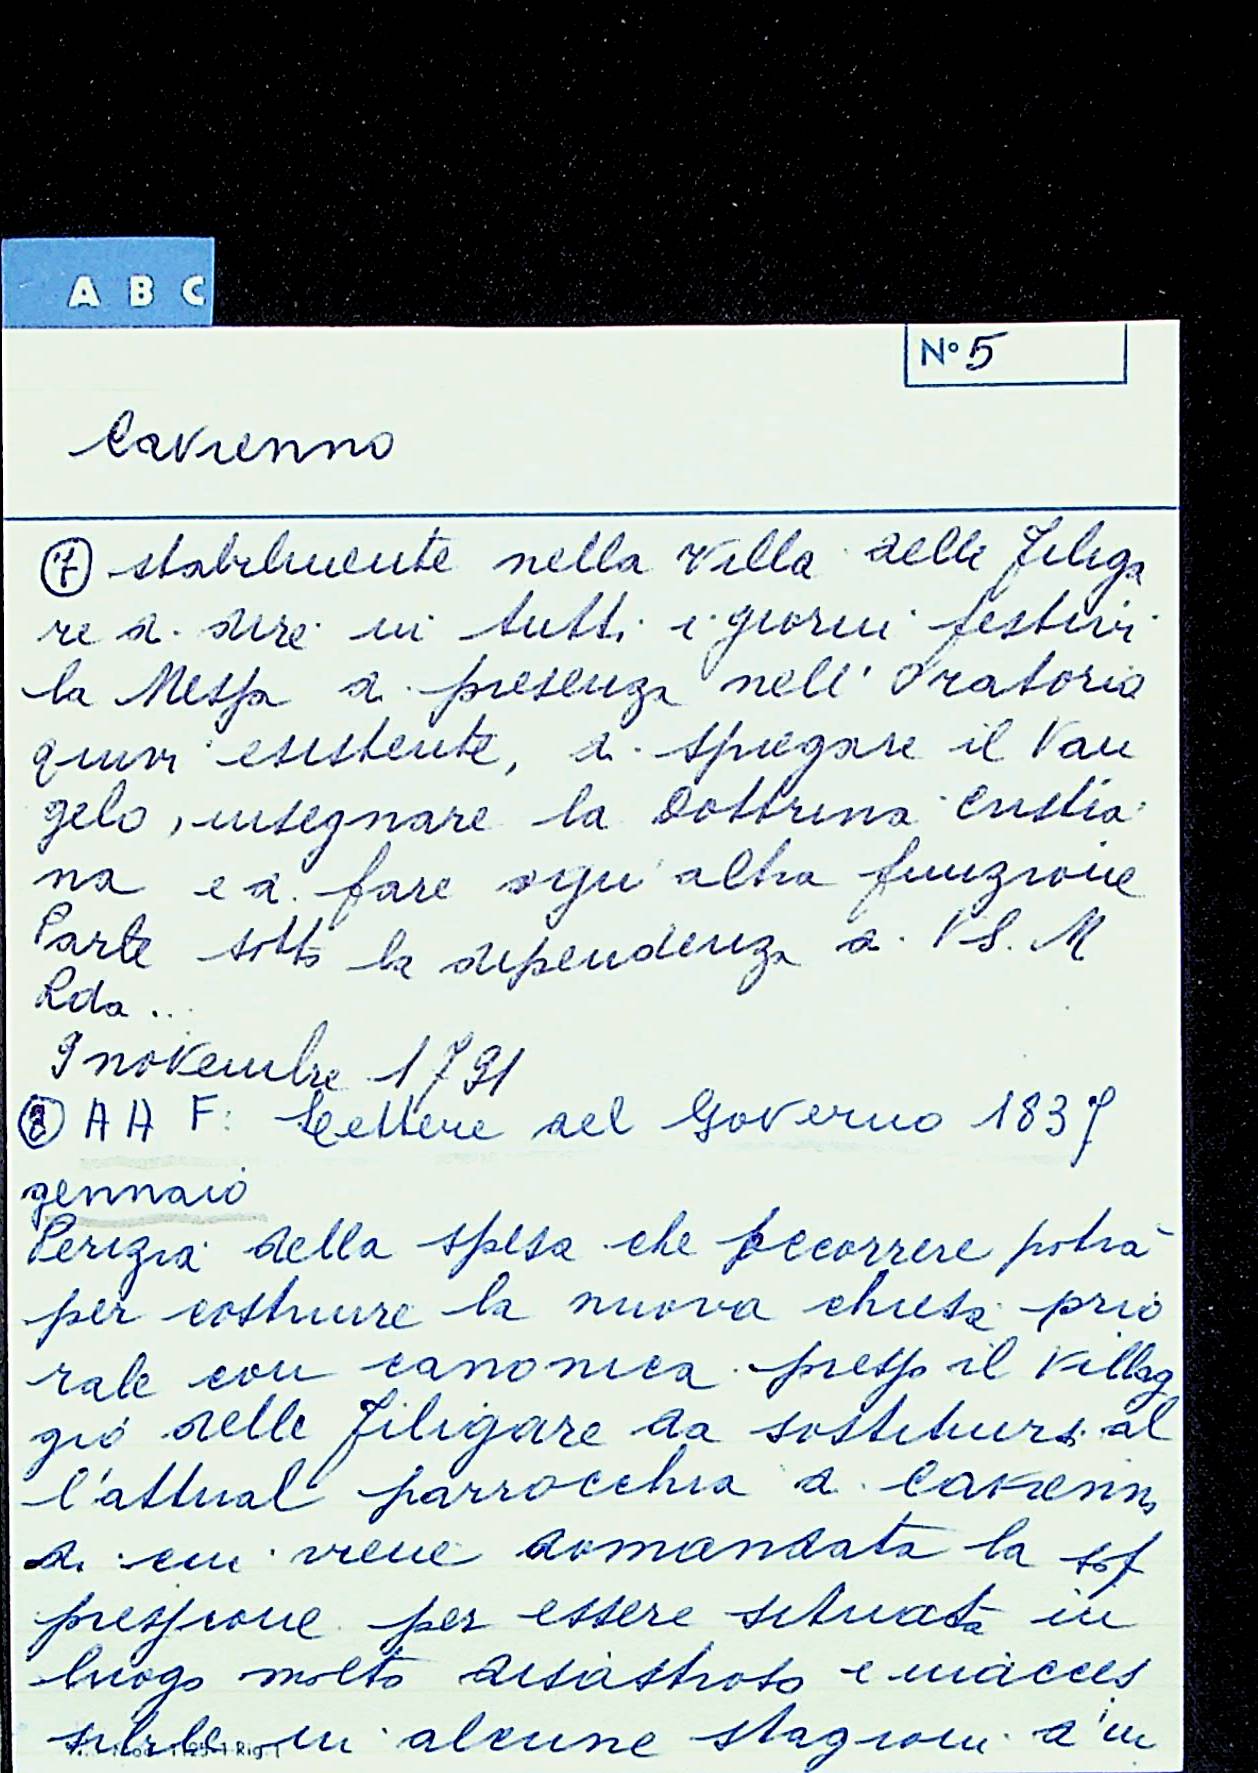 A B C
N° 5
Cavrenno
⑦ stabilmente nella Villa delle Filiga
re di dire in tutti i giorni festivi
la Messa di presenza nell' Oratorio
quivi esistente, di spiegare il Van
gelo, insegnare la Dottrina Cristia
na e di fare ogni altra funzione
Parte sotto la dipendenza di VS. M
Rda ..
9 novembre 1791
⑧ A A F: Lettere del Governo 1837
gennaio
Perizia della spesa che occorrere potrà
per costruire la nuova chiesa prio
rale con canonica presso il Villag
gio delle Filigare da sostituirsi al
l'attual parrocchia di Cavrenno
di cui viene domandata la sop
pressione per essere situata in
luogo molto disastroso e inacces
sibile in alcune stagioni d'in